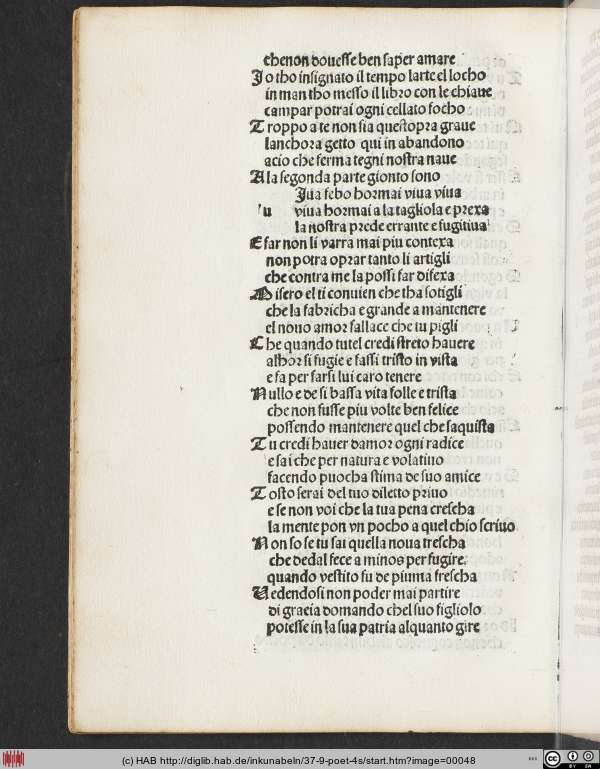 chenon douesse ben saper amare
Io tho insignato il tempo larte el locho
in man tho messo il libro con le chiaue
campar potrai ogni cellato focho
Troppo a te non sia questopra graue
lanchora getto qui in abandono
acio che ferma tegni nostra naue
Ala segonda parte gionto sono
Iua febo hormai viua viua
u viua hormai a la tagliola e prexa
la nostra prede errante e fugitiua
E far non li varra mai piu contexa
non potra oprar tanto li artigli
che contra me la possi far difexa
Misero el ti conuien che tha sotigli
che la fabricha e grande a mantenere
el nouo amor fallace che tu pigli
Che quando tutel credi streto hauere
alhor si fugie e fassi tristo in vista
e fa per farsi lui caro tenere
Nullo e de si bassa vita folle e trista
che non fusse piu volte ben felice
possendo mantenere quel che saquista
Tu credi hauer damor ogni radice
e sai che per natura e volatiuo
facendo puocha stima de suo amice
Tosto serai del tuo diletto priuo
e se non voi che la tua pena crescha
la mente pon vn pocho a quel chio scriuo
Non so se tu sai quella noua trescha
che dedal fece a minos per fugire.
quando vestito fu de piuma frescha
Uedendosi non poder mai partire
di gracia domando chel suo figliolo
potesse in la sua patria alquanto gire
(c) HAB http://diglib.hab.de/inkunabeln/37-9-poet-4s/start.htm?image=00048